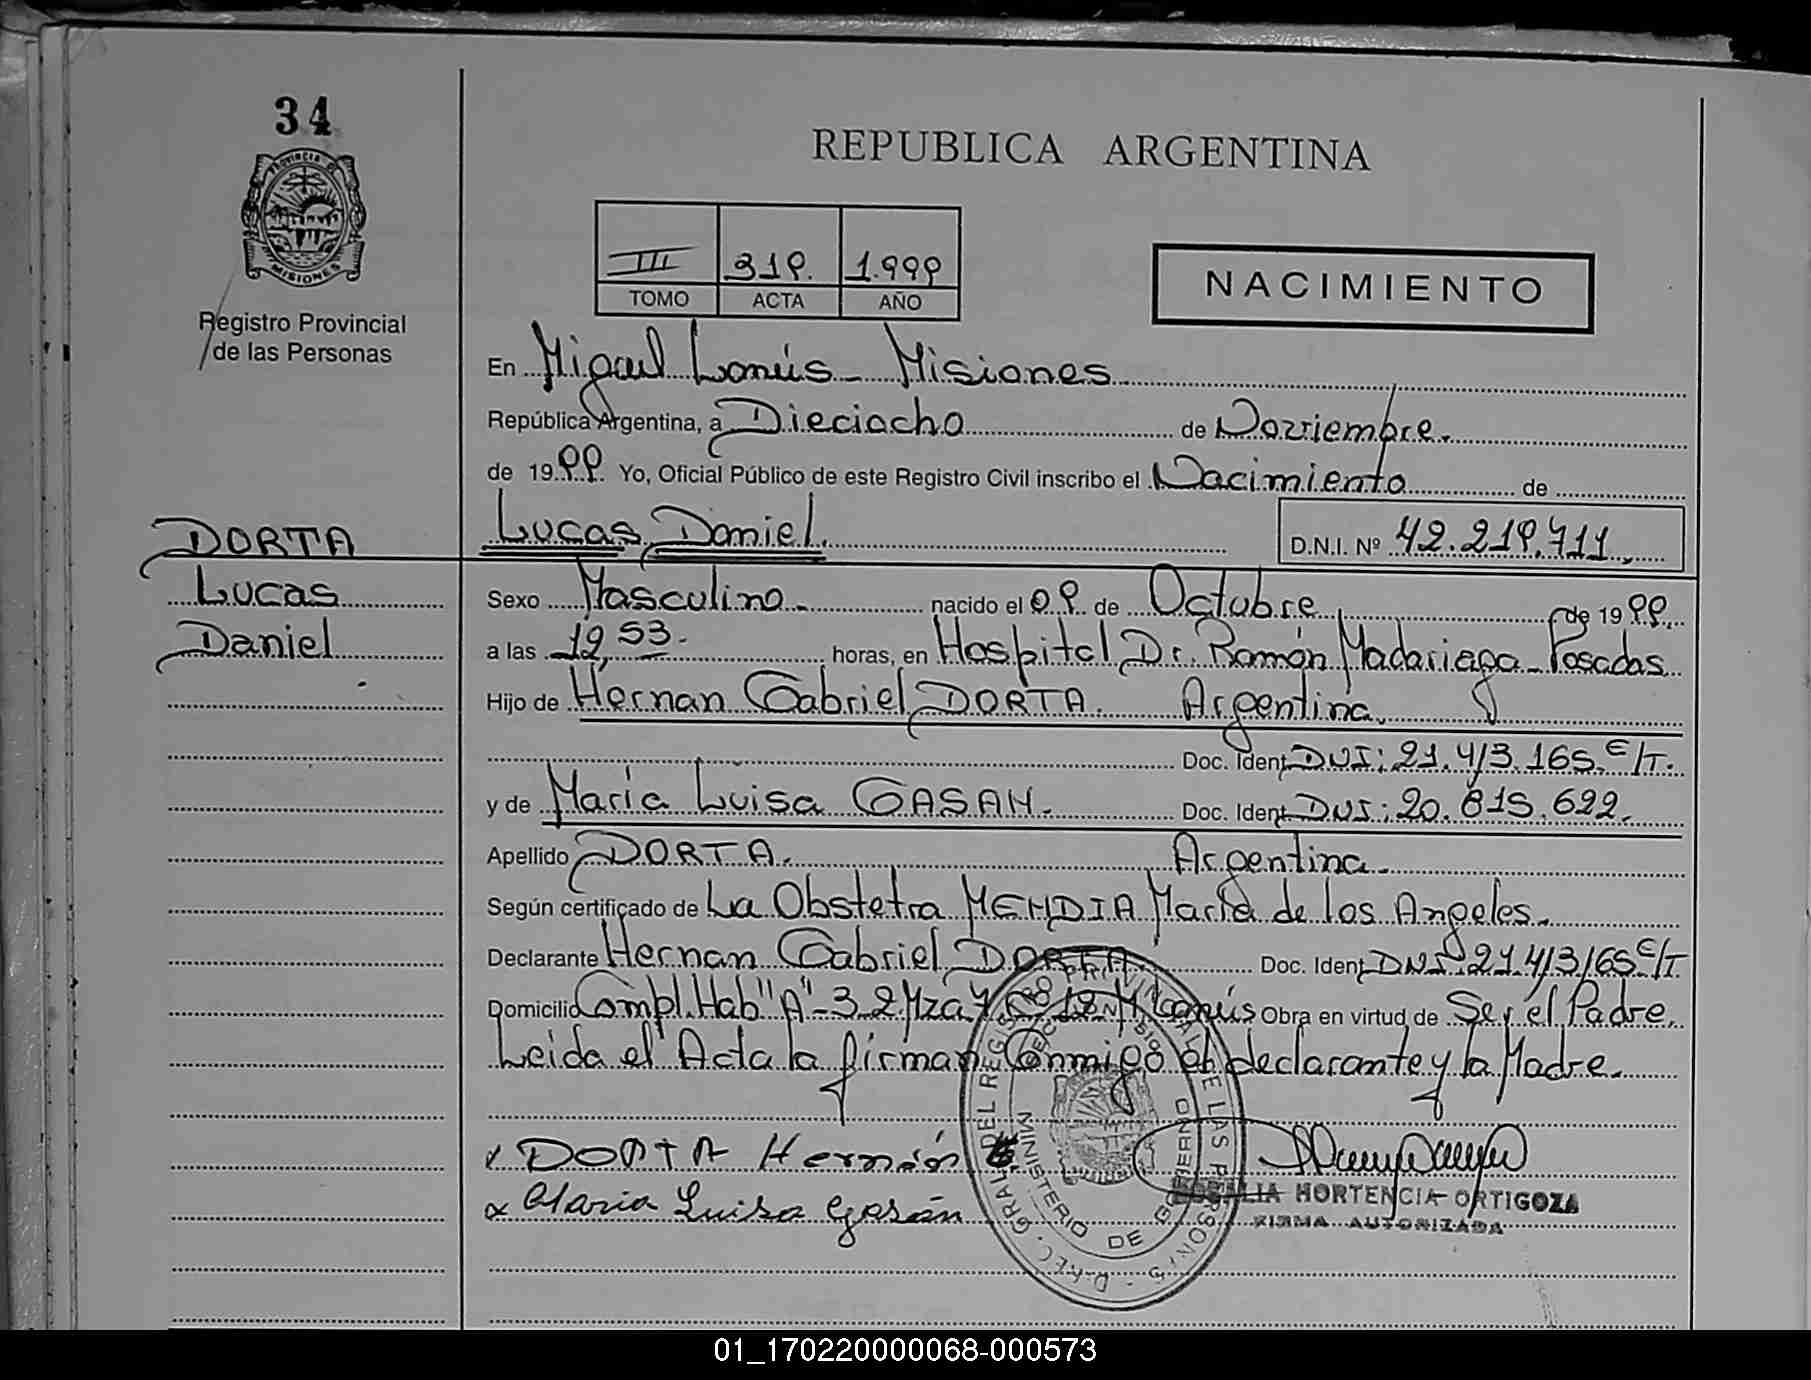 34
PROVINCIA DE
MISIONES
Registro Provincial
de las Personas
REPUBLICA ARGENTINA
III 319. 1.999
TOMO ACTA AÑO
NACIMIENTO
En Miguel Lanús - Misiones
República Argentina, a Dieciocho de Noviembre.
de 1999. Yo, Oficial Público de este Registro Civil inscribo el Nacimiento de
Lucas Daniel. D.N.I. Nº 42.219.711.
DORTA
Lucas
Daniel
Sexo Masculino. nacido el 09 de Octubre de 1999.
a las 12,53. horas, en Hospital Dr. Ramón Madariaga - Posadas
Hijo de Hernan Gabriel DORTA. Argentina.
Doc. Ident. DNI: 21.413.165. E/T.
y de María Luisa GASAN. Doc. Ident. DNI: 20.815.622.
Apellido DORTA. Argentina.
Según certificado de La Obstetra MENDIA María de los Angeles.
Declarante Hernan Gabriel DORTA. Doc. Ident. DNI 21.413165 E/T.
Domicilio Compl. Hab "A" - 32 Mza 7 12 M. Lanús Obra en virtud de Ser el Padre.
Leida el Acta la firman Conmigo el declarante y la Madre.
DORTA Hernán
Maria Luisa Gasán
HORTENCIA ORTIGOZA
FIRMA AUTORIZADA
GRAL. DEL REGISTRO PROVINCIAL DE LAS PERSONAS
MINISTERIO DE GOBIERNO
01_170220000068-000573